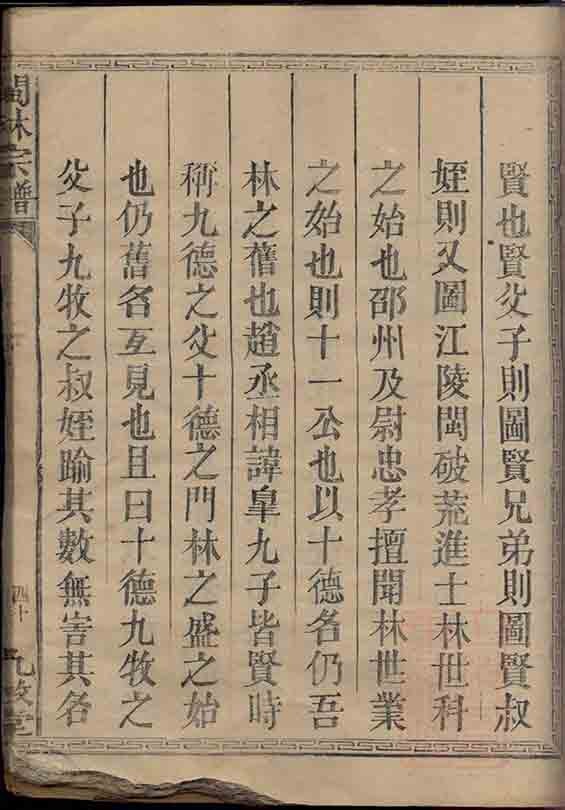 賢也賢父子則圖賢兄弟則圖賢叔
姪則又圖江陵閩破荒進士林世科
之始也邵州及尉忠孝擅聞林世業
之始也則十一公也以十德名仍吾
林之舊也趙丞相諱皐九子皆賢時
稱九德之父十德之門林之盛之始
也仍舊名互見也且曰十德九牧之
父子九牧之叔姪踰其數無害其名
閩林宗譜
四十
九牧堂